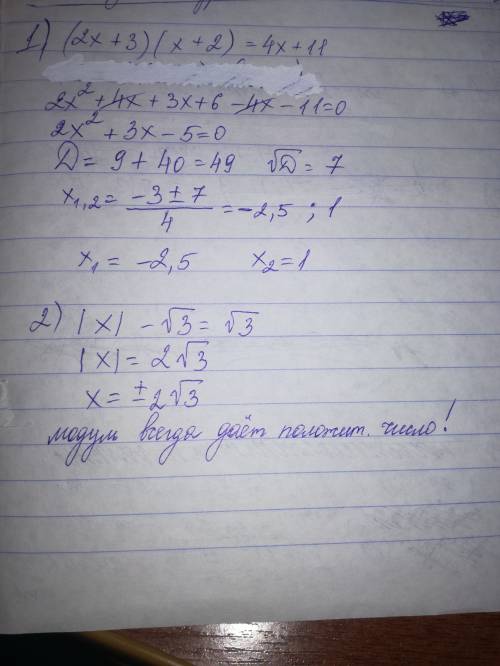 1) (2x+3)(x+2)=4x+11
2x²+4x+3x+6-4x-11=0
2x²+3x-5=0
D=9+40=49 √D=7
x₁,₂= (-3±7)/4 =-2,5 ; 1
x₁= -2,5 x₂=1
2) |x| -√3= √3
|x|= 2√3
x= ±2√3
модуль всегда даёт положит. число!